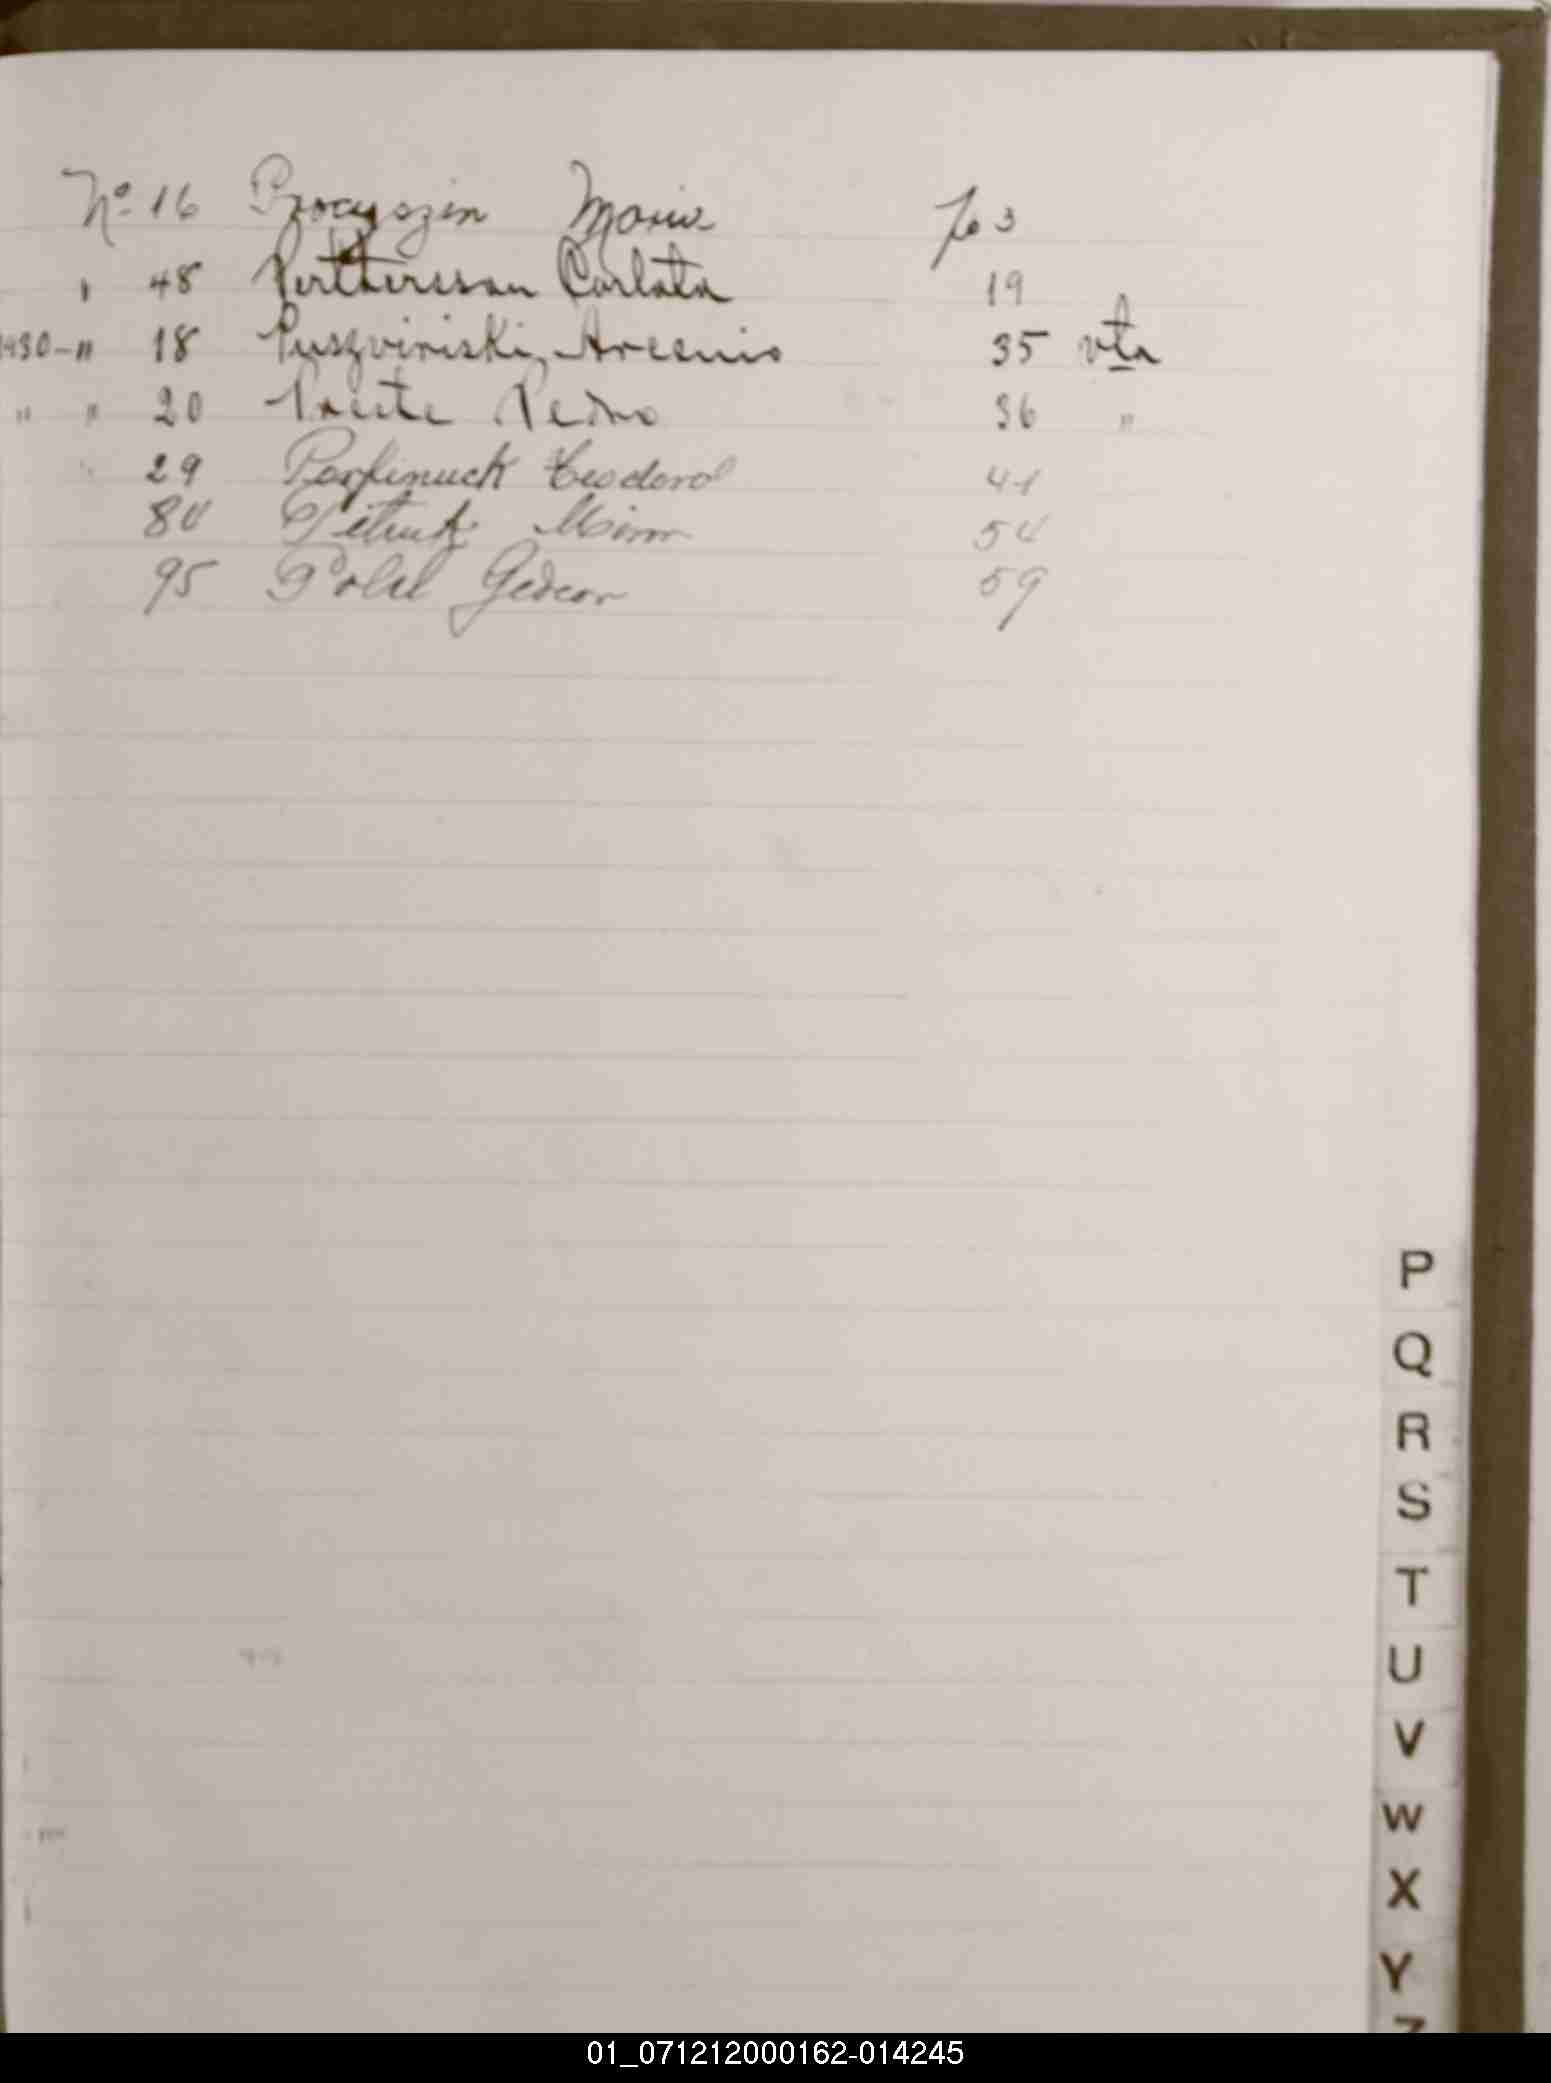 Nº 16 Procyszin Maria fo 3
" 48 Perttersson Carlota 19
1930 - " 18 Puszviriski, Arcenio 35 vta
" " 20 Preste Pedro 36 "
" 29 Parfinuck Teodoro 41
80 Petruk Miron 54
95 Polil Gedeon 59
P
Q
R
S
T
U
V
W
X
Y
Z
01_071212000162-014245